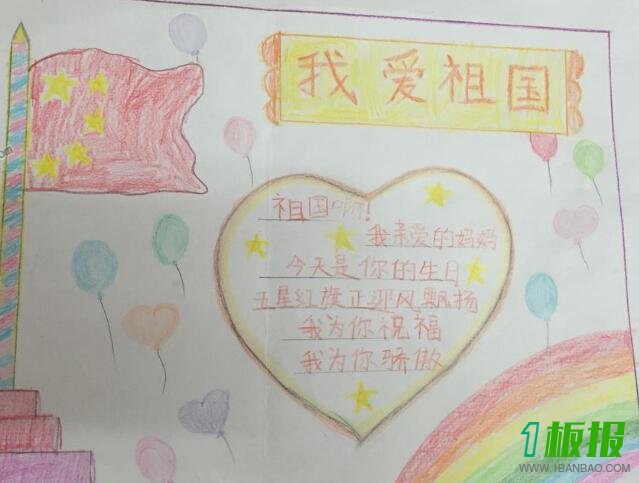 我爱祖国
祖国啊!
我亲爱的妈妈
今天是你的生日
五星红旗正迎风飘扬
我为你祝福
我为你骄傲
1板报
WWW.1BANBAO.COM